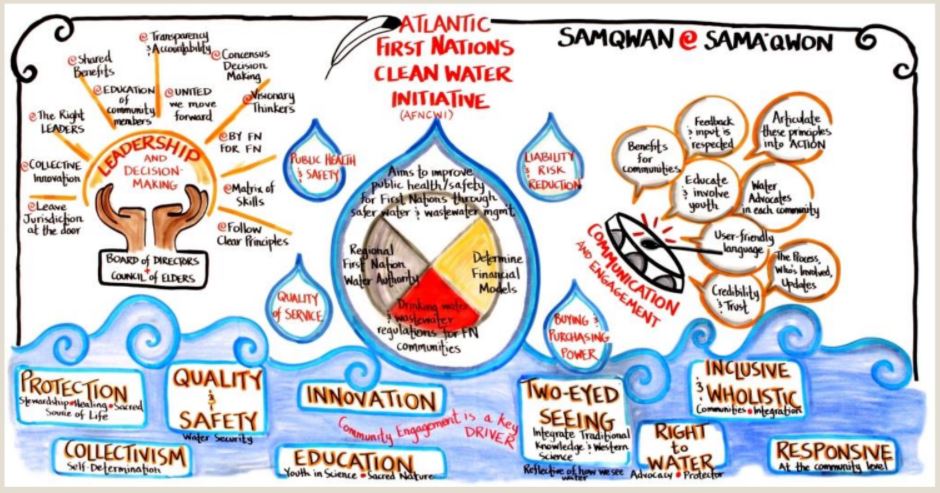 ATLANTIC
FIRST NATIONS
CLEAN WATER
INITIATIVE
(AFNCWI)
SAMQWAN @ SAMA'QWON
@ Transparency
& Accountability
@ Shared
Benefits
@ Concensus
Decision
Making
@ EDUCATION
of
community
members
@ UNITED
we move
forward
@ Visionary
Thinkers
@ The Right
LEADERS
@ BY FN
FOR FN
@ COLLECTIVE
Innovation
@ Matrix of
Skills
@ Leave
Jurisdiction
at the door
@ Follow
Clear Principles
LEADERSHIP
AND
DECISION-
MAKING
BOARD OF DIRECTORS
+
COUNCIL OF ELDERS
PUBLIC HEALTH
& SAFETY
LIABILITY
& RISK
REDUCTION
QUALITY
OF SERVICE
BUYING &
PURCHASING
POWER
Aims to improve
public health/safety
for First Nations through
safer water & wastewater mgmt
Regional
First Nation
Water Authority
Determine
Financial
Models
Drinking water
& wastewater
regulations for FN
communities
COMMUNICATION
AND ENGAGEMENT
Benefits
for
communities
Feedback
& input is
respected
Articulate
these principles
into ACTION
Educate
& involve
youth
Water
Advocates
in each community
User-friendly
language
The Process,
Who's Involved,
Updates
Credibility
& Trust
PROTECTION
Stewardship • Healing • Sacred
Source of Life
QUALITY
&
SAFETY
Water Security
INNOVATION
Community Engagement is a Key
DRIVER
TWO-EYED
SEEING
Integrate Traditional
Knowledge & Western
Science
Reflective of how we see
water
INCLUSIVE
&
WHOLISTIC
Communities • Integration
COLLECTIVISM
Self-Determination
EDUCATION
Youth in Science • Sacred Nature
RIGHT
TO
WATER
Advocacy • Protector
RESPONSIVE
At the community level